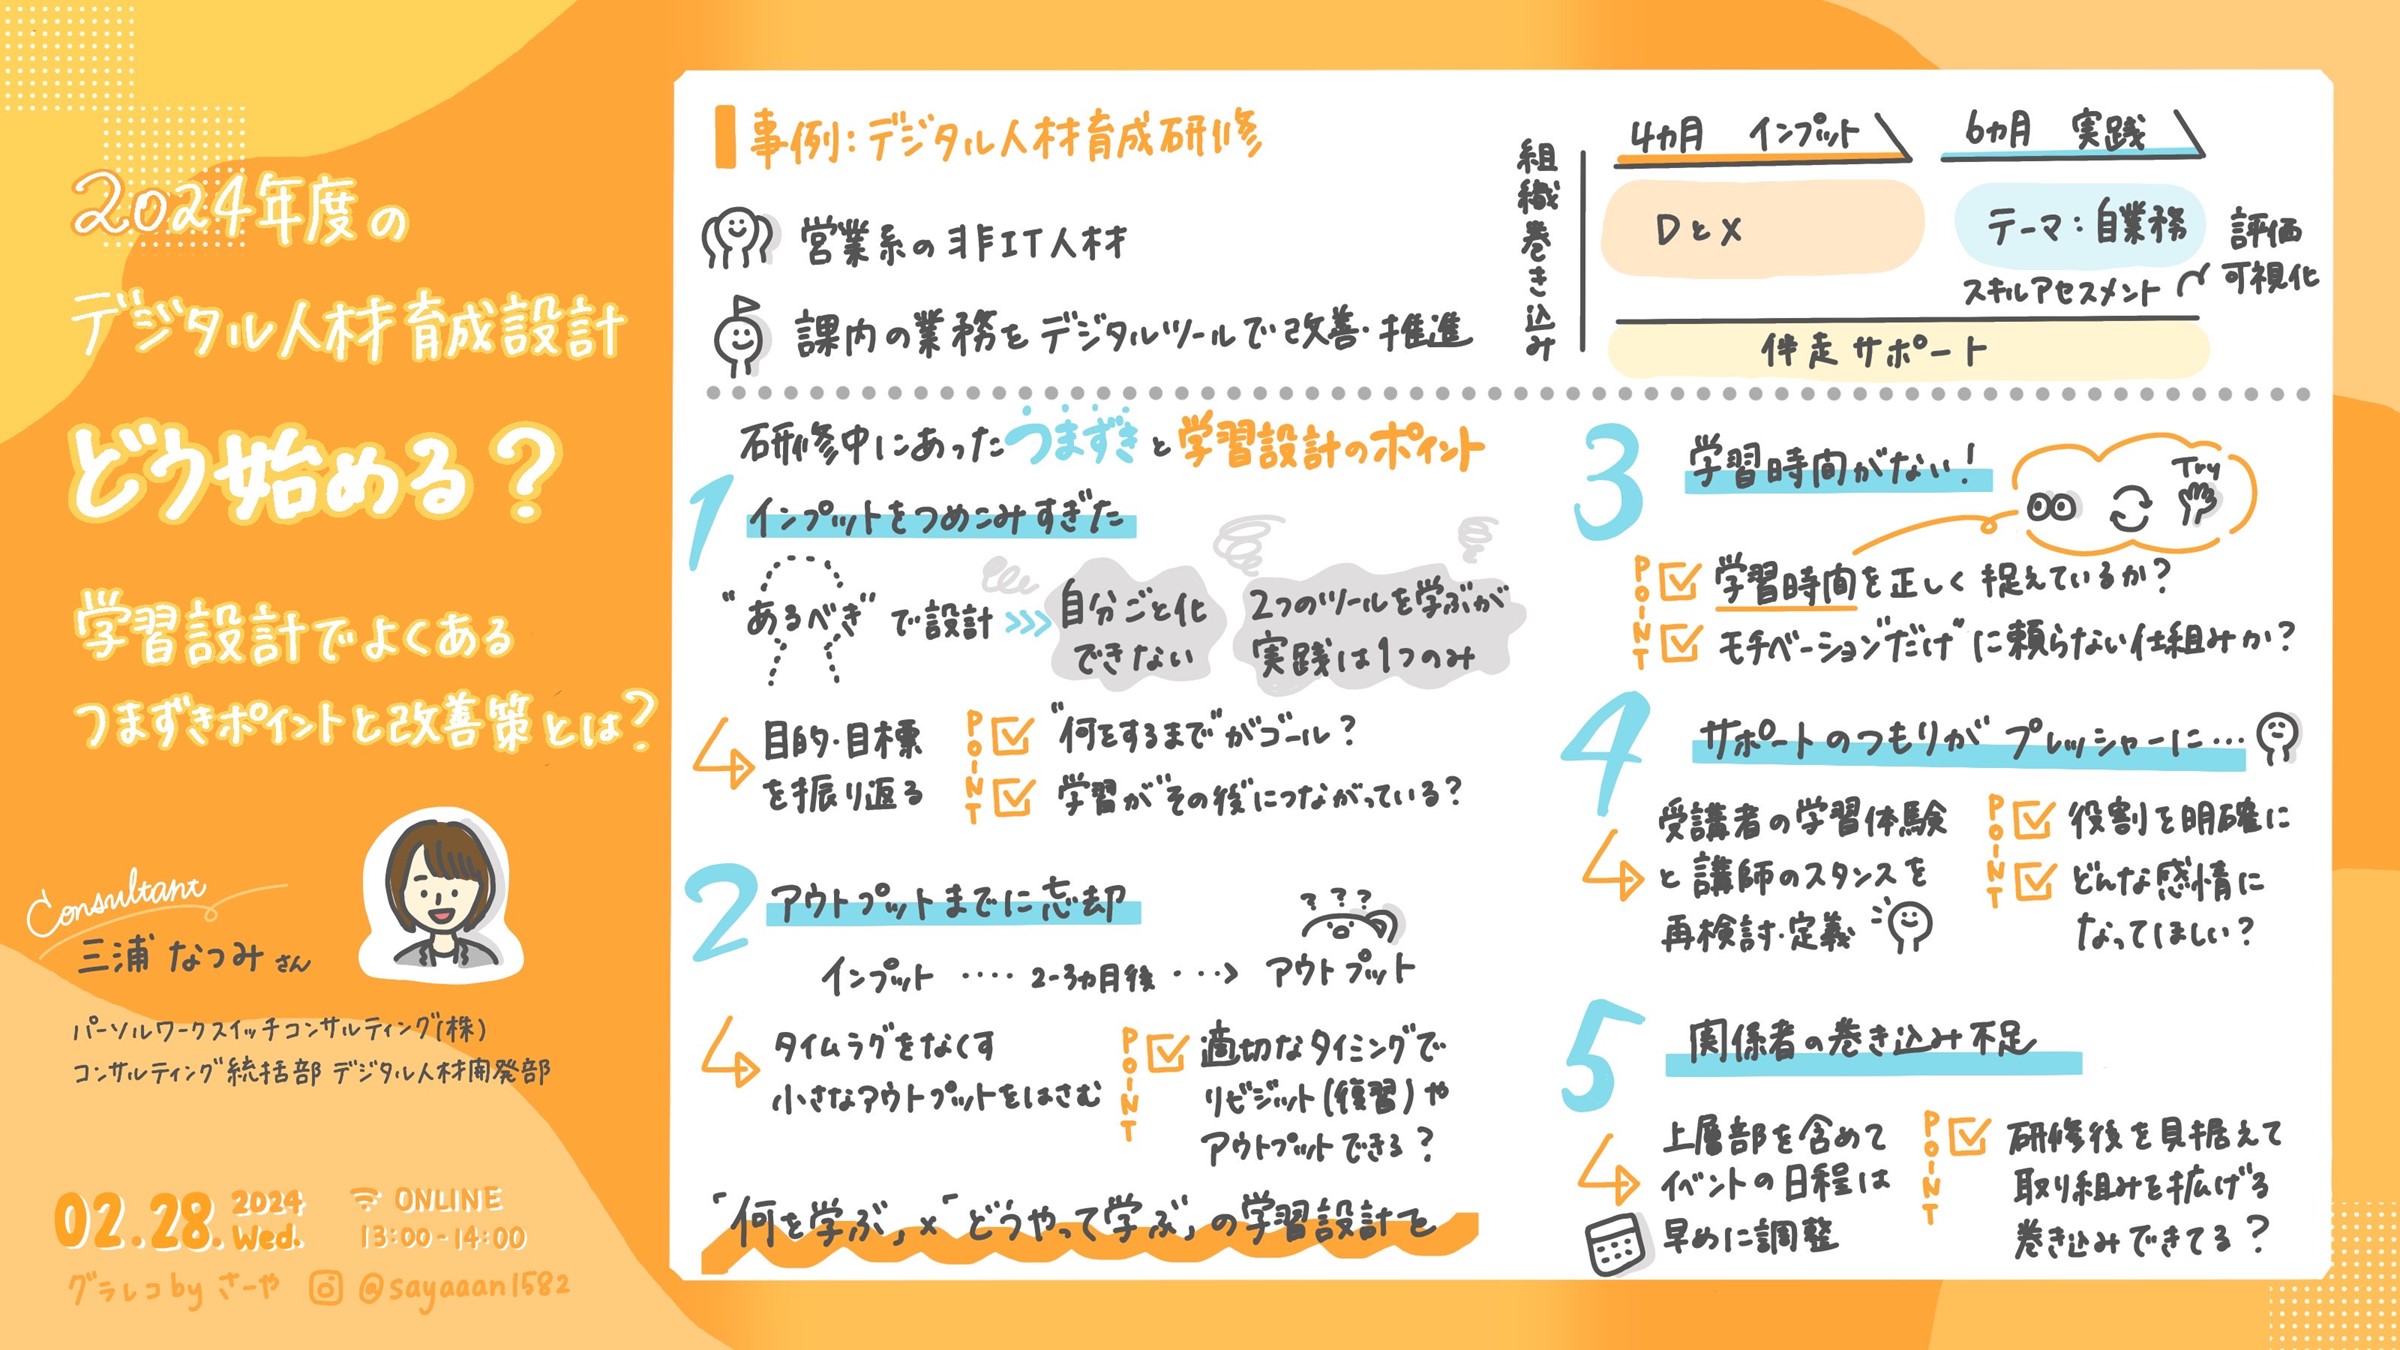 2024年度の
デジタル人材育成設計
どう始める?
学習設計でよくある
つまずきポイントと改善策とは?
Consultant
三浦 なつみ さん
パーソルワークスイッチコンサルティング(株)
コンサルティング統括部 デジタル人材開発部
02.28. 2024 Wed.
ONLINE
13:00-14:00
グラレコby さーや @sayaaan1582
事例:デジタル人材育成研修
営業系の非IT人材
課内の業務をデジタルツールで改善・推進
組織巻き込み
4カ月 インプット
6カ月 実践
DとX
テーマ:自業務
スキルアセスメント
評価
可視化
伴走サポート
研修中にあったつまずきと学習設計のポイント
1 インプットをつめこみすぎた
"あるべき"で設計 >>>
自分ごと化
できない
2つのツールを学ぶが
実践は1つのみ
目的・目標
を振り返る
POINT
"何をするまで"がゴール?
学習が"その後"につながっている?
2 アウトプットまでに忘却
???
インプット ‥‥ 2-3カ月後 ‥‥> アウトプット
タイムラグをなくす
小さなアウトプットをはさむ
POINT
適切なタイミングで
リビジット(復習)や
アウトプットできる?
「何を学ぶ」×「どうやって学ぶ」の学習設計を
3 学習時間がない!
Try
POINT
学習時間を正しく捉えているか?
モチベーション"だけ"に頼らない仕組みか?
4 サポートのつもりがプレッシャーに…
受講者の学習体験
と講師のスタンスを
再検討・定義
POINT
役割を明確に
どんな感情に
なってほしい?
5 関係者の巻き込み不足
上層部を含めて
イベントの日程は
早めに調整
POINT
研修後を見据えて
取り組みを拡げる
巻き込みできてる?